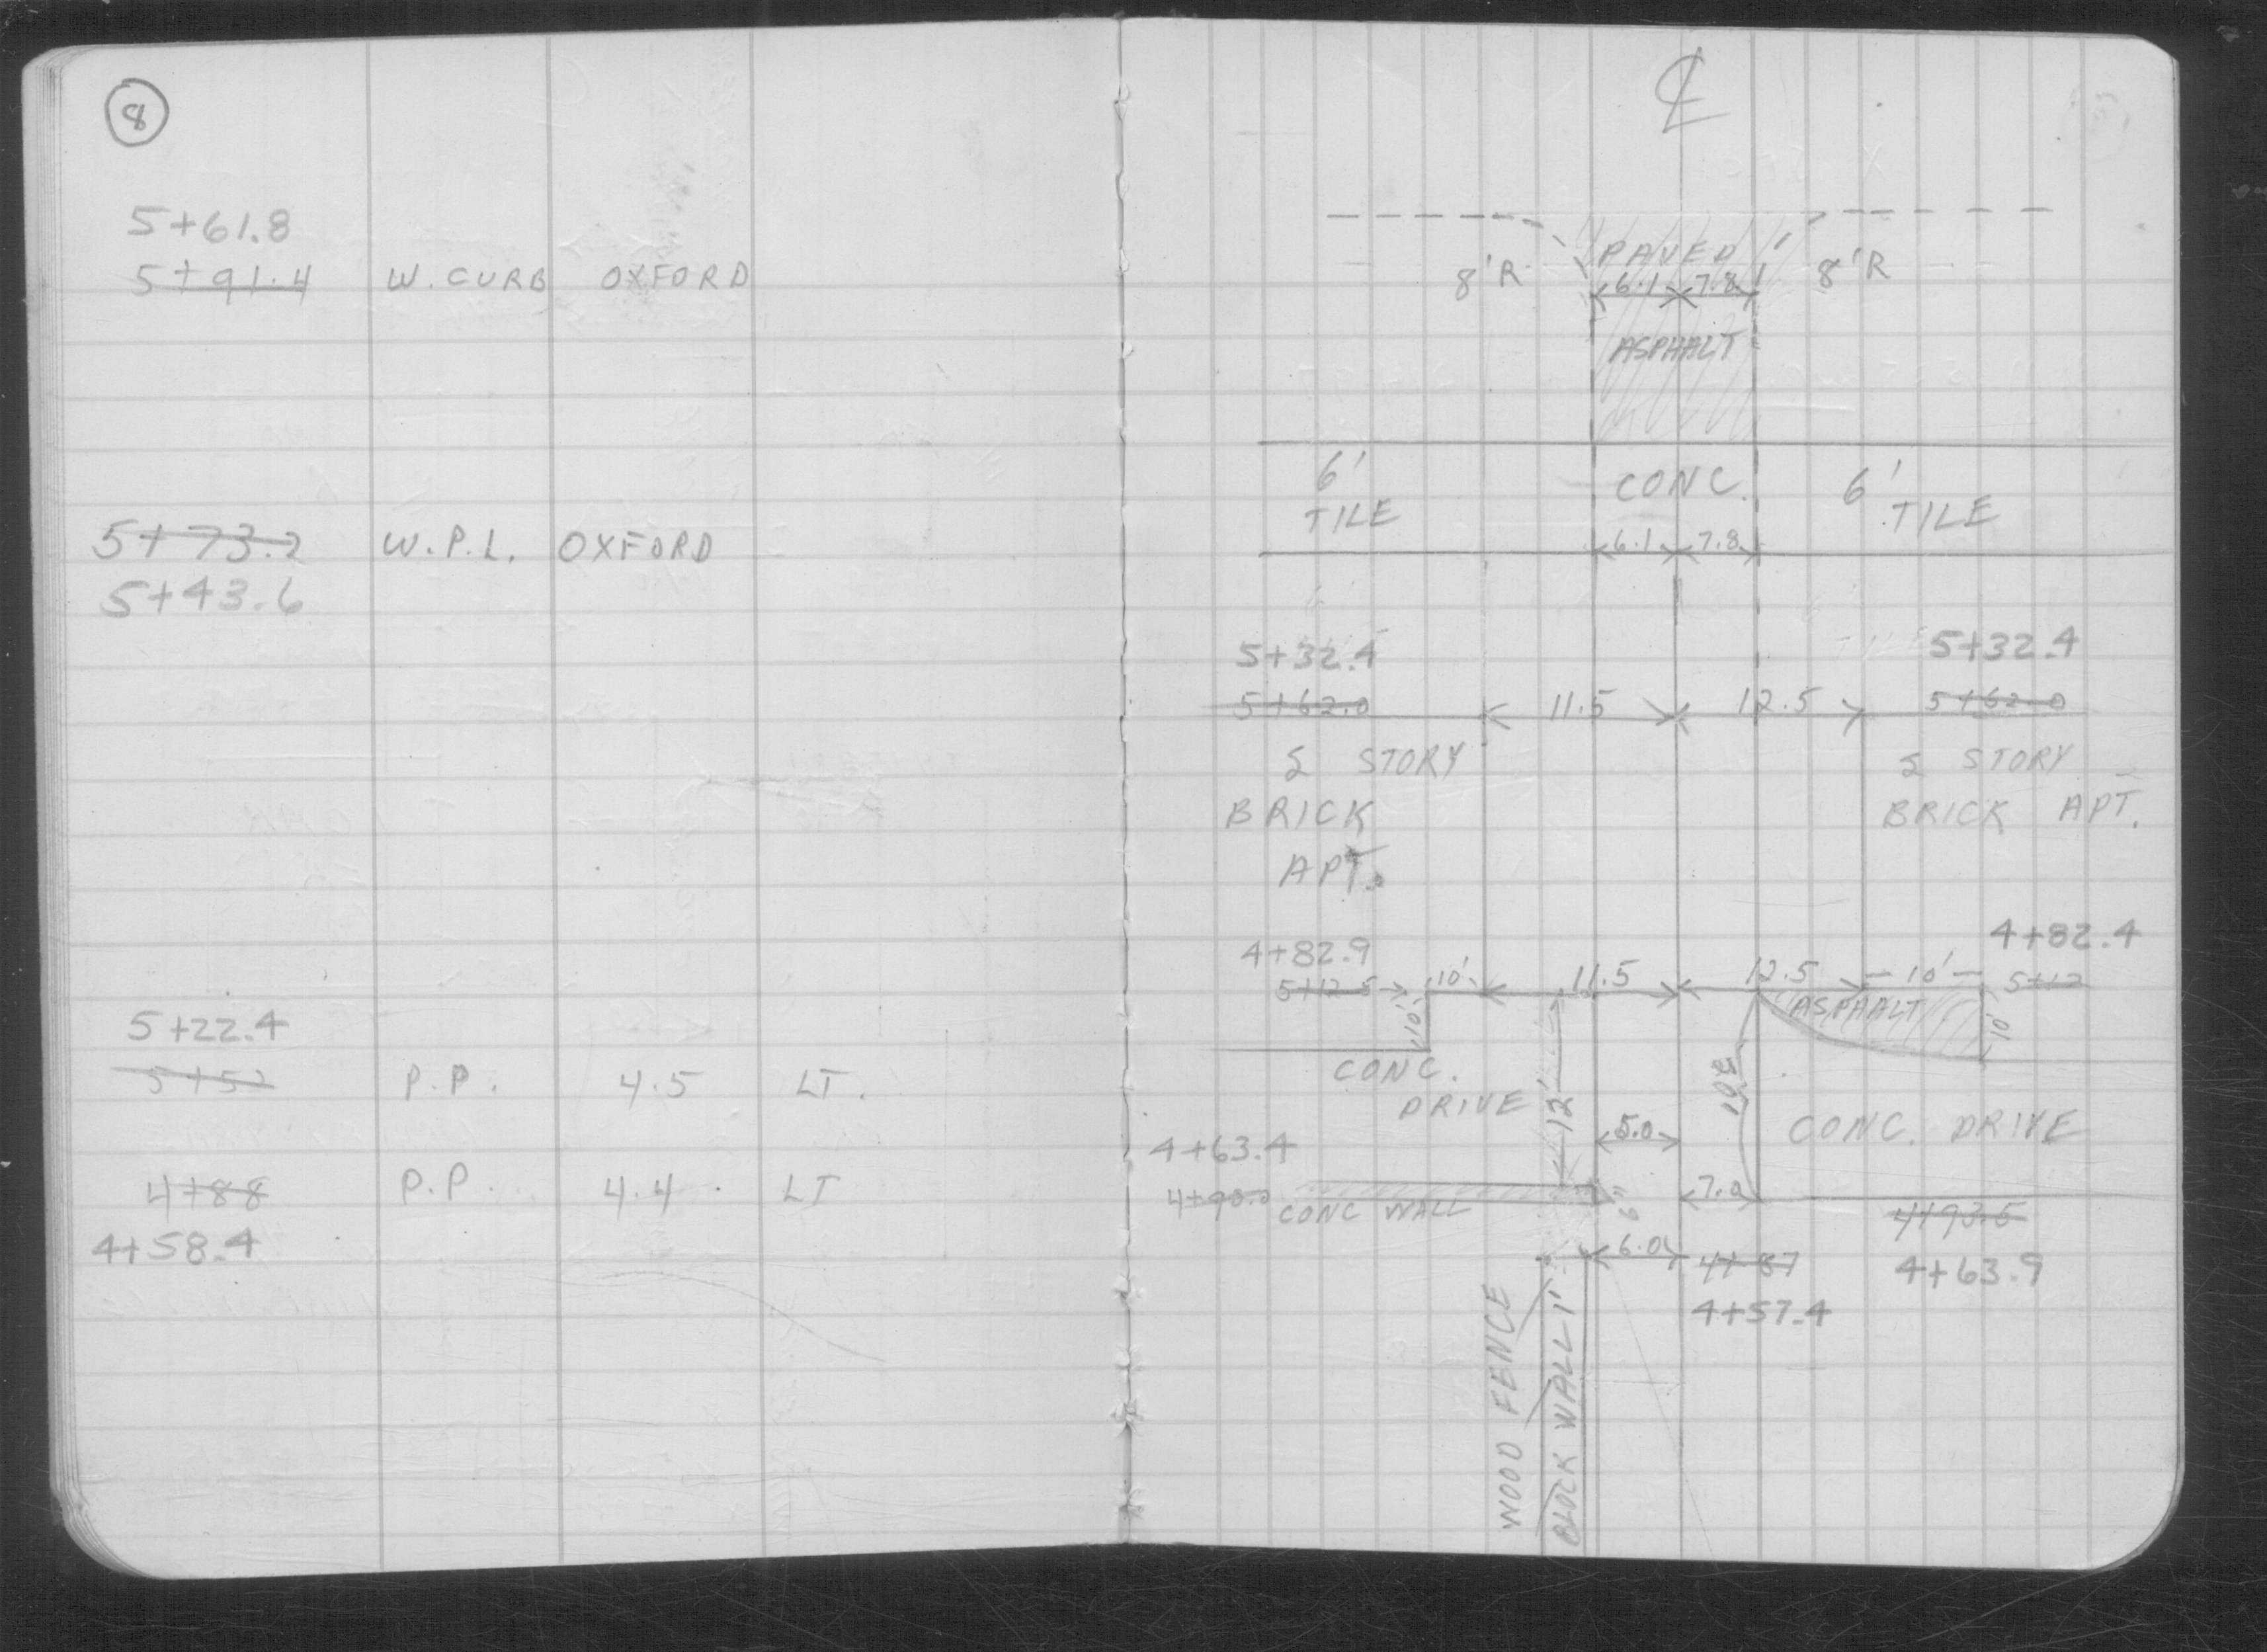 8
5+61.8
5+91.4 W. CURB OXFORD
5+73.2 W.P.L. OXFORD
5+43.6
5+22.4
5+52 P.P. 4.5 LT.
4+88 P.P. 4.4 LT
4+58.4
℄
PAVED
8'R 6.1 7.8 8'R
ASPHALT
6' CONC. 6'
TILE TILE
6.1 7.8
5+32.4 5+32.4
5+62.0 11.5 12.5 5+62.0
STORY STORY
BRICK BRICK APT.
APT.
4+82.9 4+82.4
5+12.5 10' 11.5 12.5 10' 5+12
ASPHALT
10' 10'
CONC.
DRIVE 12' CONC. DRIVE
5.0
4+63.4
4+93.0 7.0
CONC WALL 6"
4+93.5
6.0 4+87 4+63.9
4+57.4
WOOD FENCE
BLOCK WALL 1'